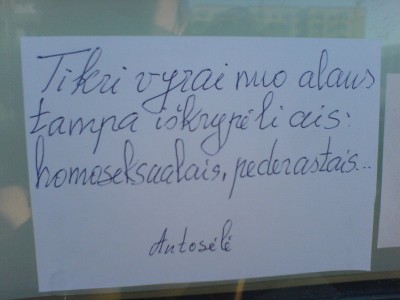 Tikri vyrai nuo alaus
tampa iškrypėliais:
homoseksualais, pederastais...
Antosėlė